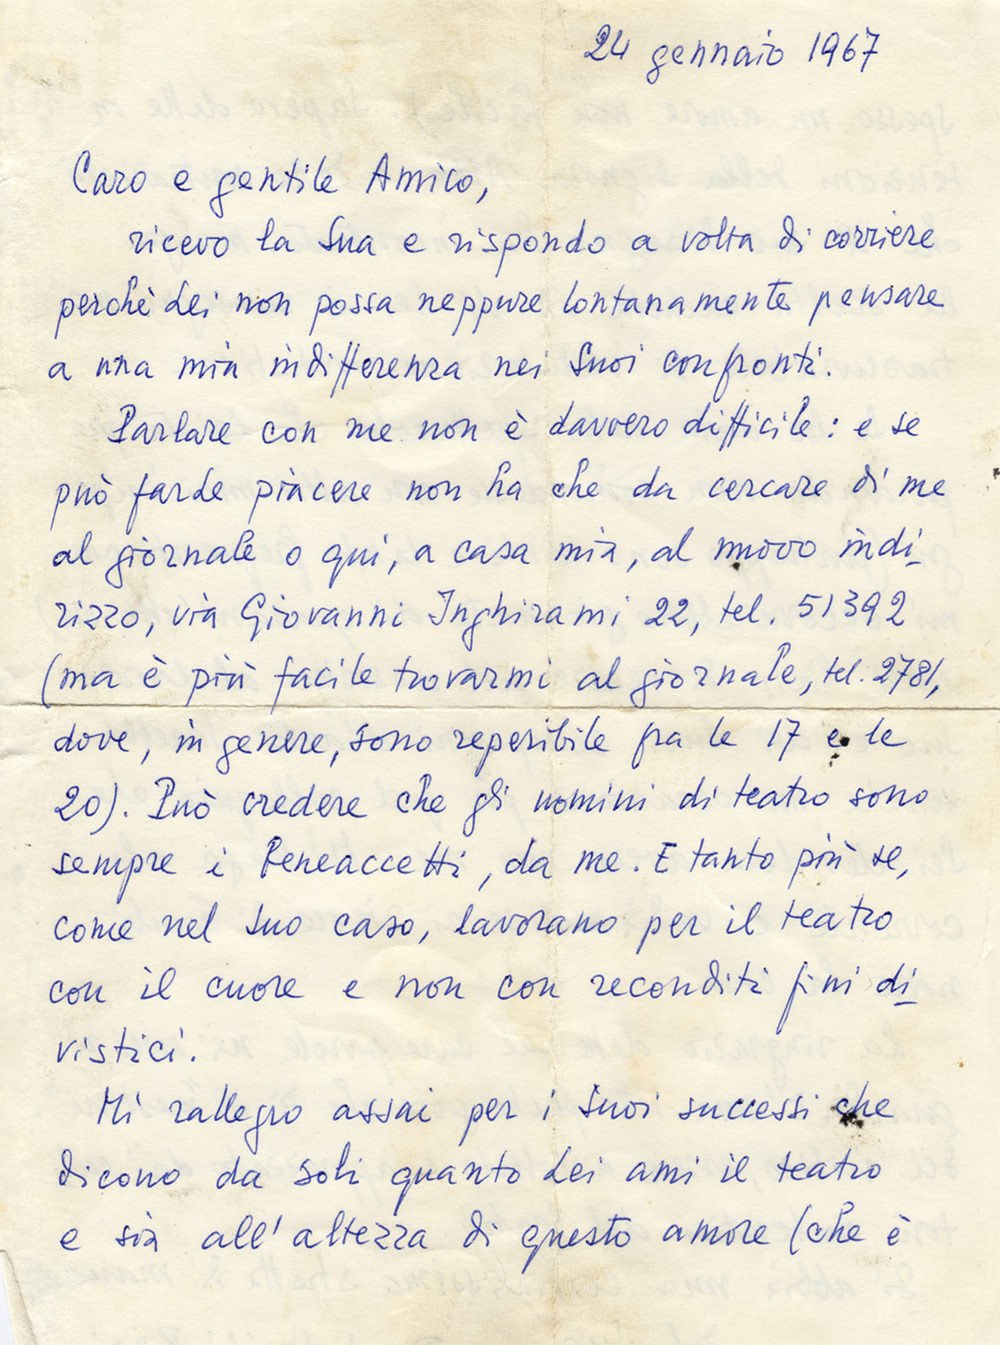 24 gennaio 1967
Caro e gentile Amico,
ricevo la Sua e rispondo a volta di corriere
perchè Lei non possa neppure lontanamente pensare
a una mia indifferenza nei Suoi confronti.
Parlare con me non è davvero difficile: e se
può farLe piacere non ha che da cercare di me
al giornale o qui, a casa mia, al nuovo indi
rizzo, via Giovanni Inghirami 22, tel. 51392
(ma è più facile trovarmi al giornale, tel. 2781,
dove, in genere, sono reperibile fra le 17 e le
20). Può credere che gli uomini di teatro sono
sempre i beneaccetti, da me. E tanto più se,
come nel Suo caso, lavorano per il teatro
con il cuore e non con reconditi fini di
vistici.
Mi rallegro assai per i Suoi successi che
dicono da soli quanto Lei ami il teatro
e sia all'altezza di questo amore (che è